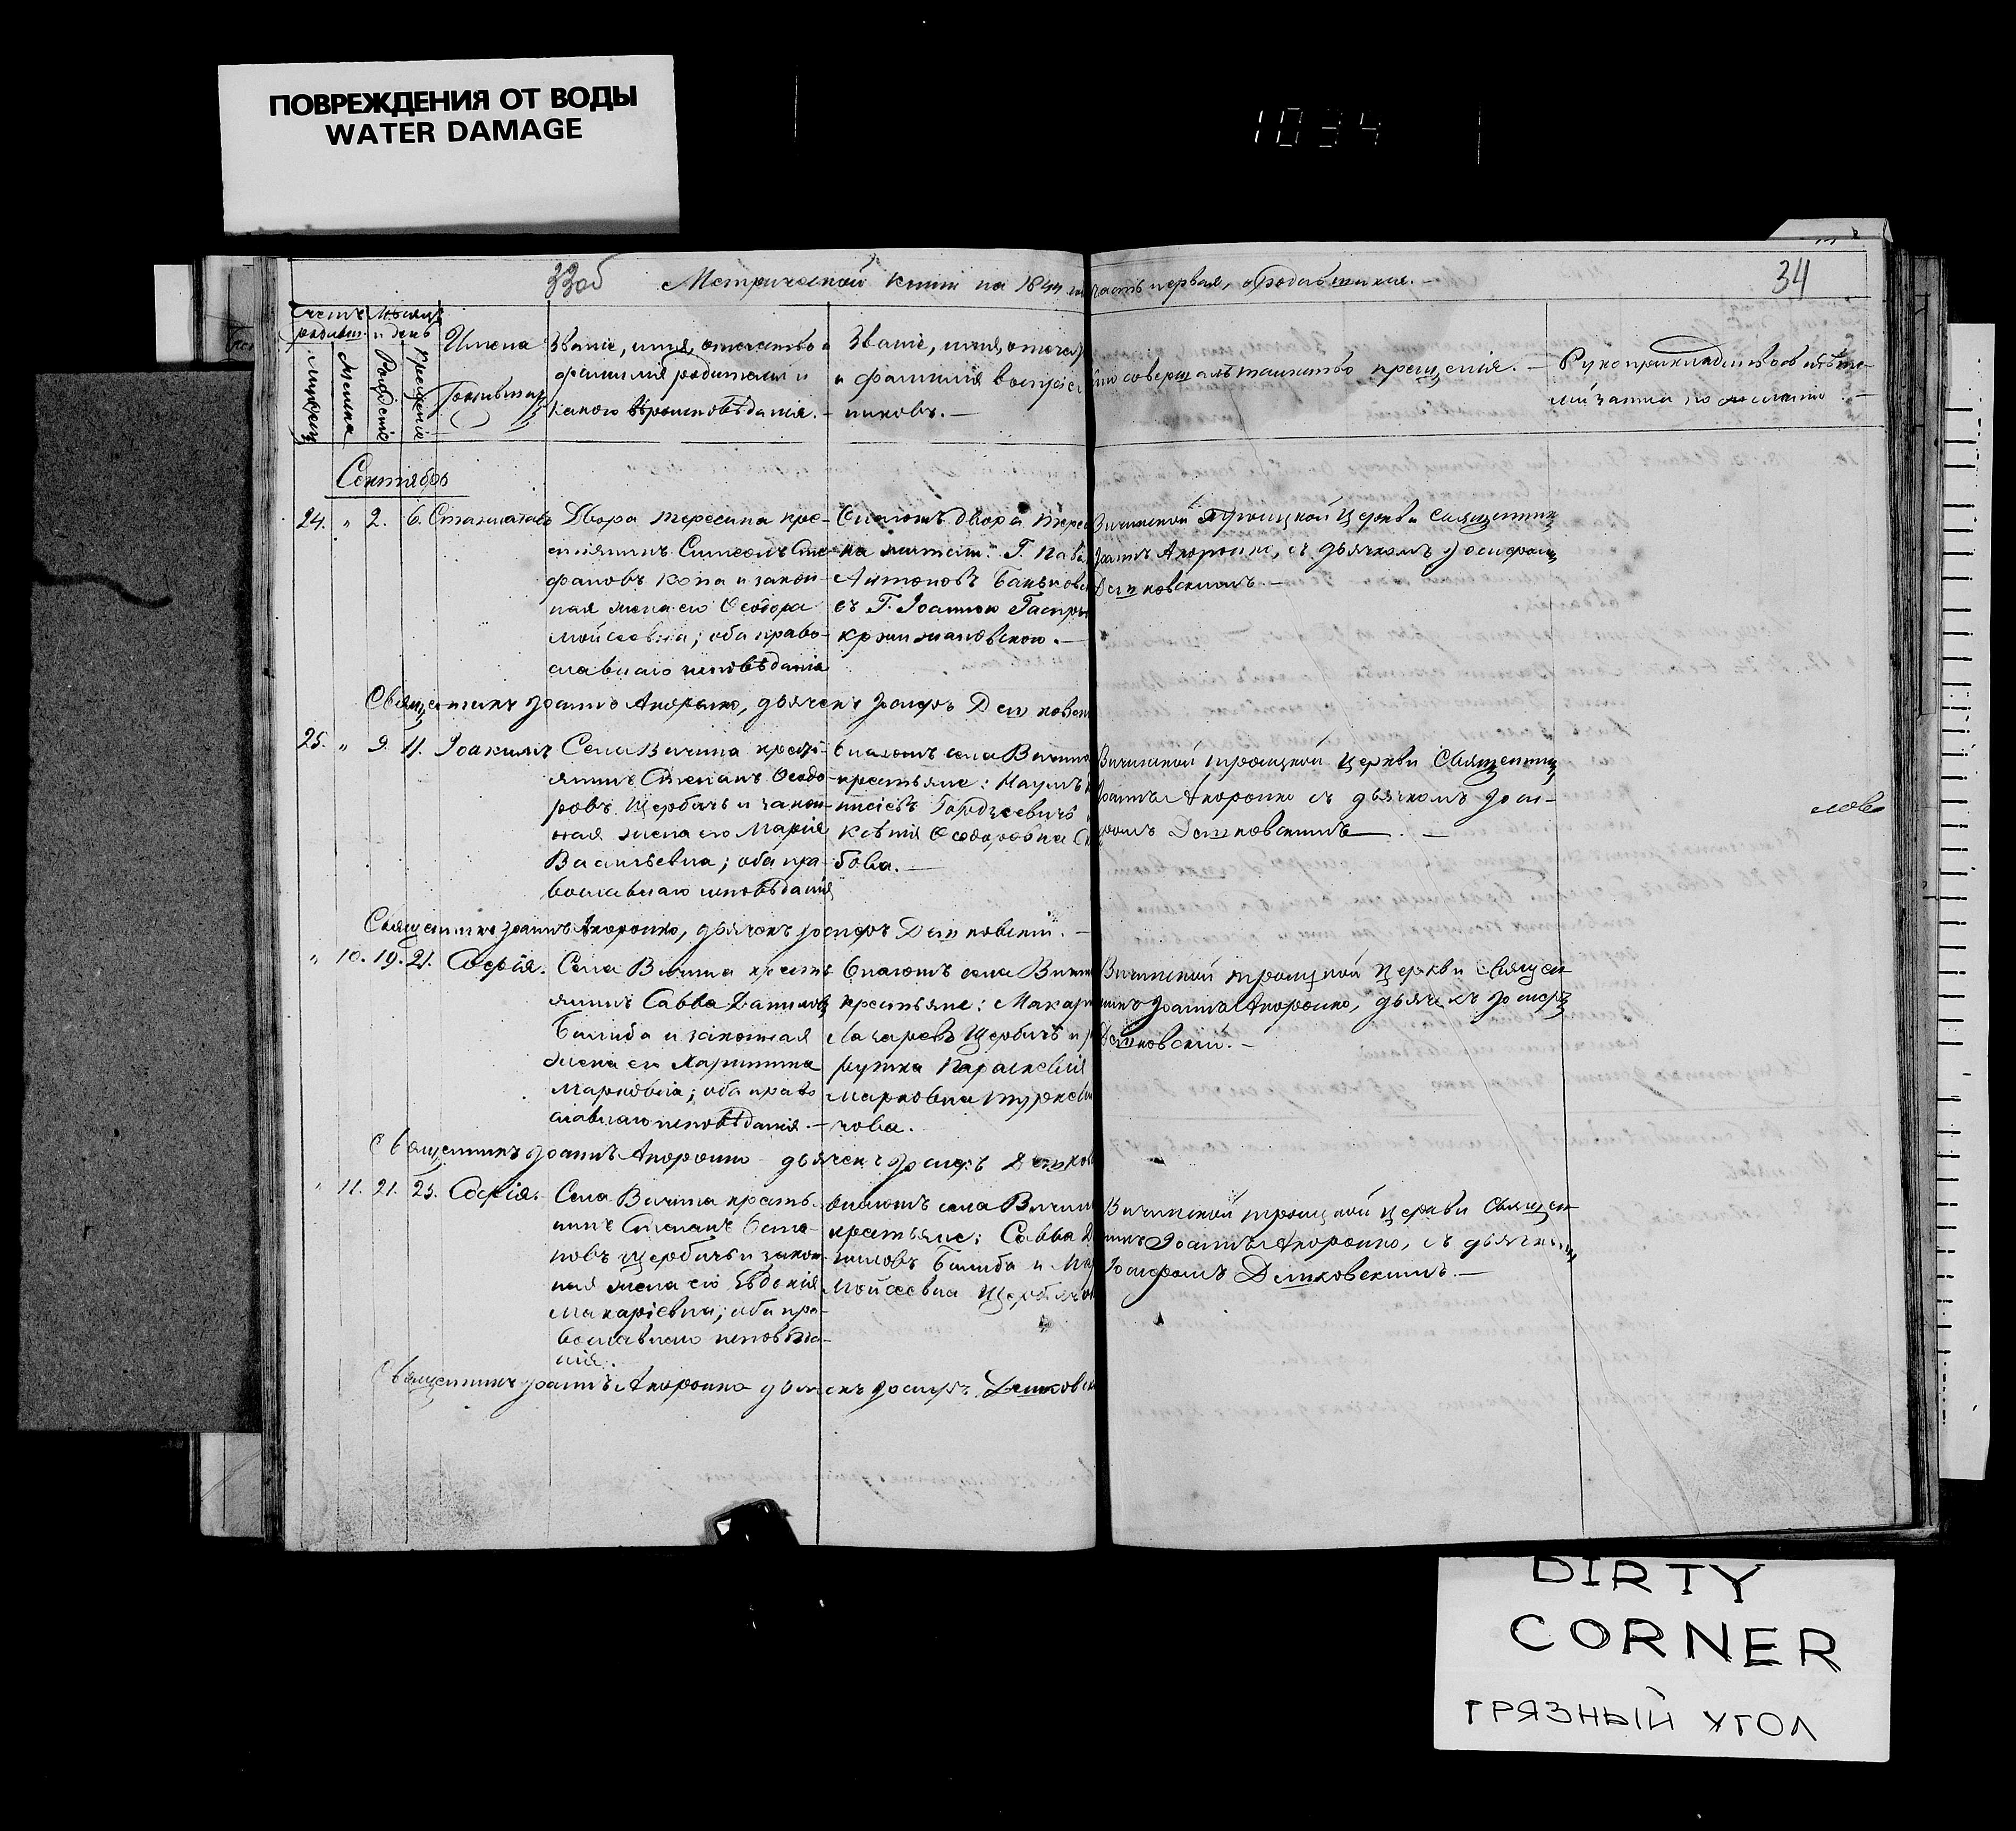 ПОВРЕЖДЕНИЯ ОТ ВОДЫ
WATER DAMAGE
1034
33об
Метрической книги на 1844 часть первая, о родившихся.
34
Имена родившихся
Мѣсяцъ и день
рожденія
крещенія
Званіе, имя, отчество и
фамилія родителей и
какого вѣроисповѣданія.
Званіе, имя, отчес
и фамилія воспріем
никовъ.
Кто совершалъ таинство крещенія.
Рукоприкладство свидѣте-
лей записи по желанію
Сентябрь
24. " 2. 6.
Двора Тересина кре-
стьянинъ Симеонъ Сте-
фановъ Копа и закон-
ная жена его Ѳеодора
Мойсеевна; оба право-
славнаго исповѣданія
двора Терес
Антоновъ Баньковс
съ Г. Іоанною
Кржижановскою.
Вичинской Троицкой Церкви Священникъ
Іоаннъ Акоронко, съ дьячкомъ Іосифомъ
Демковскимъ.
Священникъ Іоаннъ Акоронко, дьячекъ Іосифъ Демковск
25. " 9. 11. Іоакимъ
Села Вичина кресть-
янинъ Степанъ Ѳеодо-
ровъ Щербачъ и закон-
ная жена его Марія
Васильевна; оба пра-
вославнаго исповѣданія
села Вичина
крестьяне: Наумъ
Ксенія Ѳеодоровна
бова.
Вичинской троицкой Церкви Священникъ
Іоаннъ Акоронко съ дьячкомъ Іоси-
фомъ Демковскимъ
Священникъ Іоаннъ Акоронко, дьячекъ Іосифъ Демковскій.
" 10. 19. 21. Софія.
Села Вичина кресть-
янинъ Савва Даниловъ
Балиба и законная
жена его Харитина
Марковна; оба право-
славнаго исповѣданія.
села Вичин
крестьяне: Макар
Лазаревъ Щербачъ и
Параскевія
Марковна
чова.
Вичинской троицкой Церкви Священ-
никъ Іоаннъ Акоронко, дьячекъ Іосифъ
Демковскій.
Священникъ Іоаннъ Акоронко дьячекъ Іосифъ Демков
" 11. 21. 25. Софія.
Села Вичина кресть-
нинъ Степанъ
новъ Щербачъ и закон-
ная жена его Евдокія
Макаріевна; оба пра-
вославнаго исповѣда-
нія.
села Вичин
крестьяне: Савва Да
ниловъ Балиба и
Мойсеевна Щербачов
Вичинской троицкой церкви Священ-
никъ Іоаннъ Акоронко, съ дьячкомъ
Іосифомъ Демковскимъ.
Священникъ Іоаннъ Акоронко дьячекъ Іосифъ Демковск
DIRTY
CORNER
ГРЯЗНЫЙ УГОЛ